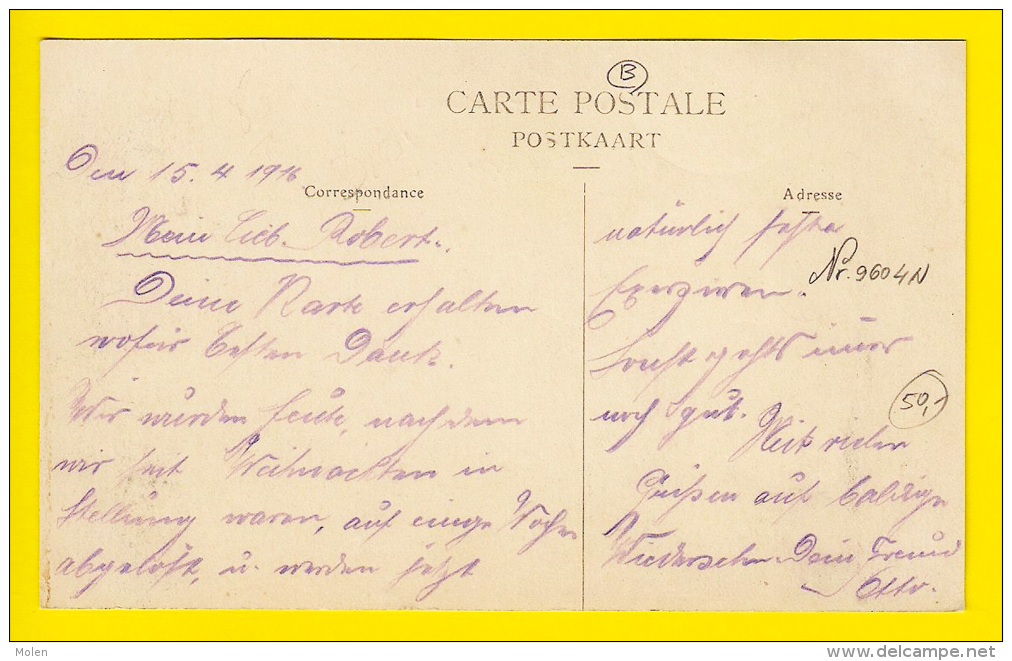 B
CARTE POSTALE
POSTKAART
Den 15.4 1916
Correspondance
Mein Lieb. Robert.
Deine Karte erhalten
wofür besten Dank.
Wir wurden heute, nachdem
wir seit Weihnachten in
Stellung waren, auf einige Wochen
abgelöst, u. werden jetzt
Adresse
natürlich feste
Nr. 9604N
Exerzieren.
Sonst gehts uns
noch gut.
50,-
Mit vielen
Grüßen auf baldige
Wiedersehn. Dein Freund
Otto.
Molen
delcampe.net